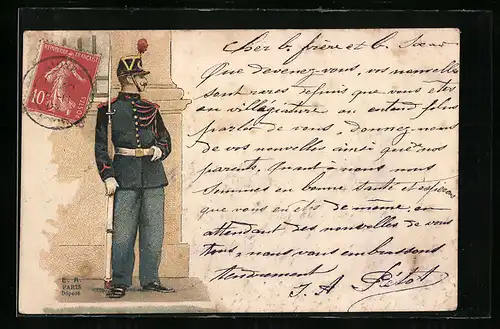 REPUBLIQUE FRANÇAISE
10c
POSTES
Cher b. frère et b. Sœur
Que devenez-vous, vos nouvelles
sont rares depuis que vous êtes
en villégiature on entend plus
parler de vous, donnez-nous
de vos nouvelles ainsi que nos
parents, quant à nous nous
sommes en bonne santé et espérons
que vous en êtes de même, en
attendant des nouvelles de vous
tous, nous vous embrassons
tendrement
J. A Pélot
E. R.
PARIS
Déposé